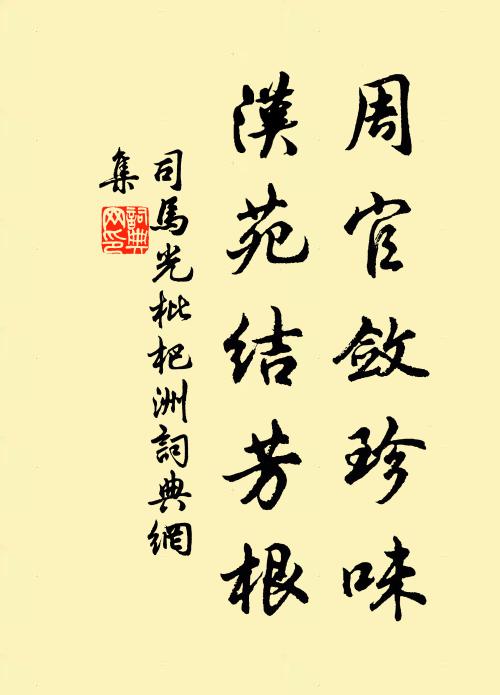 周官斂珍味
漢苑結芳根
司馬光枇杷洲詞典網
集
詞典
网印